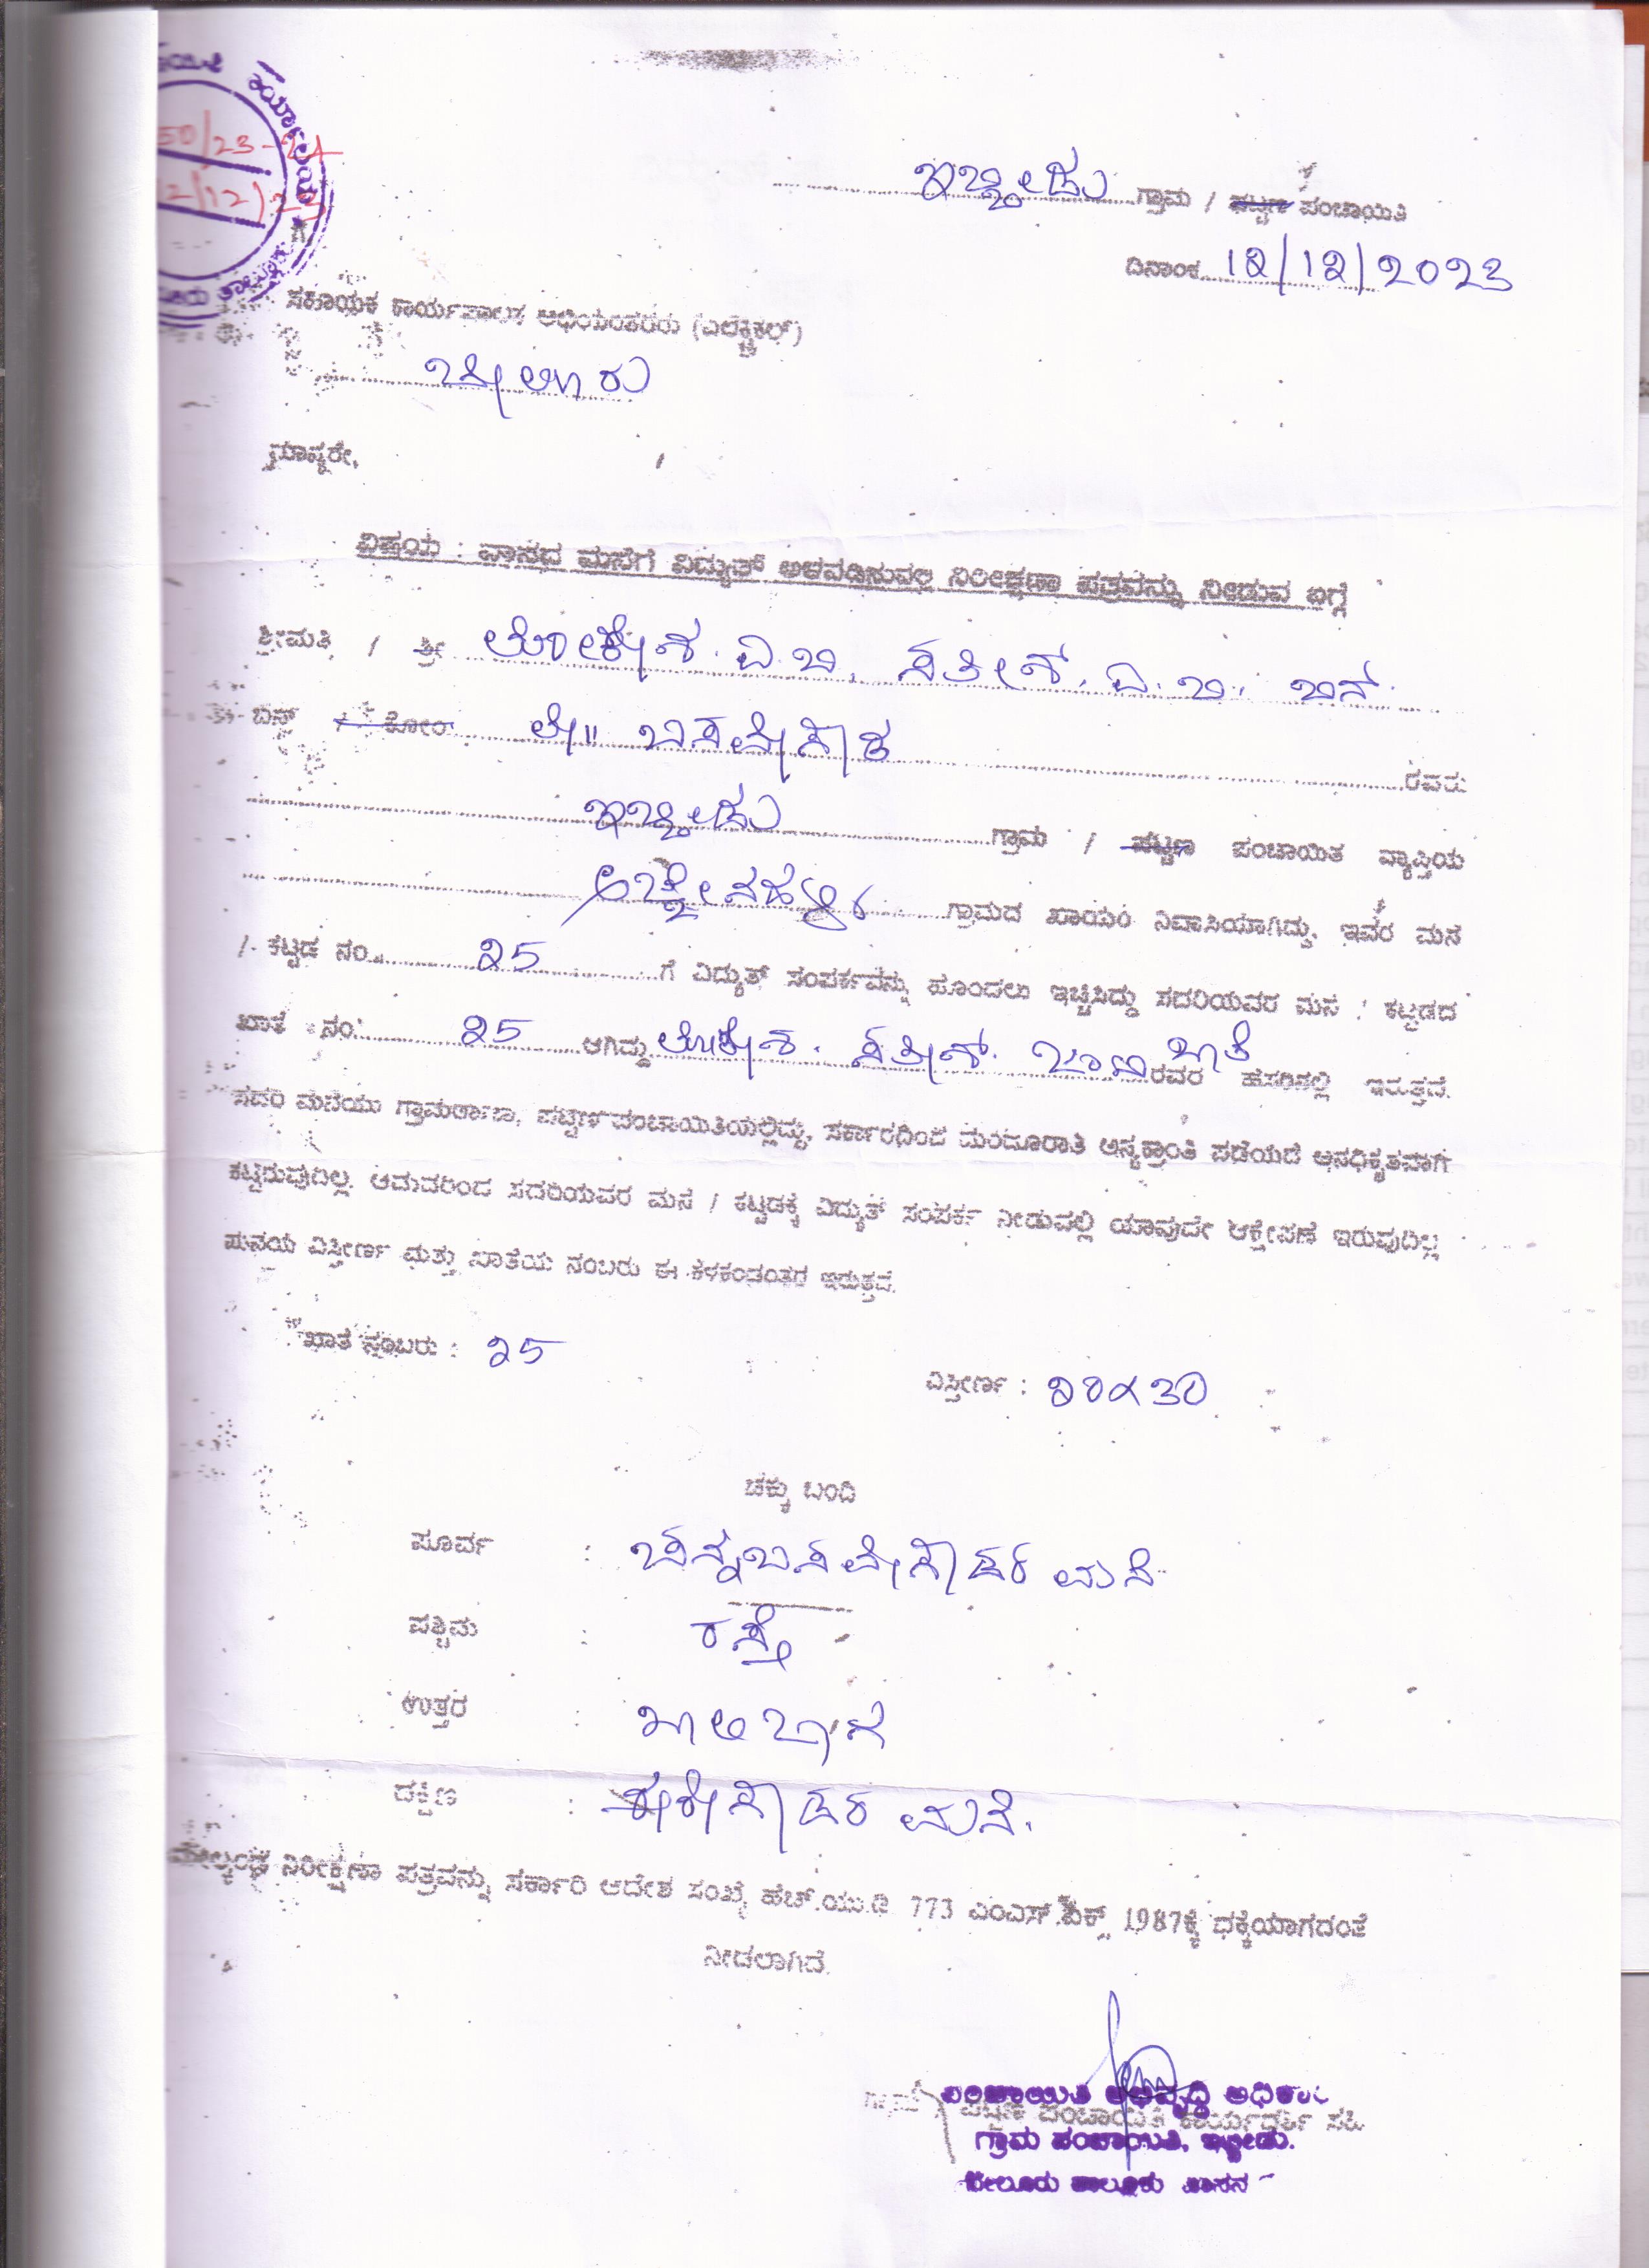 ಕಾರ್ಯಾಲಯ
50/23-24
2/12/23
ಇಬ್ಬೀಡು ಗ್ರಾಮ / ಪಟ್ಟಣ ಪಂಚಾಯಿತಿ
ದಿನಾಂಕ 12/12/2023
ಸಹಾಯಕ ಕಾರ್ಯಪಾಲಕ ಅಭಿಯಂತರರು (ಎಲೆಕ್ಟ್ರಿಕಲ್)
ಬೇಲೂರು
ಮಾನ್ಯರೇ,
ವಿಷಯ : ವಾಸದ ಮನೆಗೆ ವಿದ್ಯುತ್ ಅಳವಡಿಸುವಲ್ಲಿ ನಿರೀಕ್ಷಣಾ ಪತ್ರವನ್ನು ನೀಡುವ ಬಗ್ಗೆ
ಶ್ರೀಮತಿ / ಶ್ರೀ ಲೋಕೇಶ. ಎ.ಬಿ. ಸತೀಶ್. ಎ.ಬಿ. ಬಿನ್
ಬಿನ್ / ಕೋಂ ಲೇ|| ಬಸವೇಗೌಡ ರವರು
ಇಬ್ಬೀಡು ಗ್ರಾಮ / ಪಟ್ಟಣ ಪಂಚಾಯಿತ ವ್ಯಾಪ್ತಿಯ
ಗ್ರಾಮದ ಖಾಯಂ ನಿವಾಸಿಯಾಗಿದ್ದು, ಇವರ ಮನೆ
/ ಕಟ್ಟಡ ನಂ. 25 ಗೆ ವಿದ್ಯುತ್ ಸಂಪರ್ಕವನ್ನು ಹೊಂದಲು ಇಚ್ಚಿಸಿದ್ದು ಸದರಿಯವರ ಮನೆ / ಕಟ್ಟಡದ
ಖಾತೆ ನಂ. 25 ಆಗಿದ್ದು ಲೋಕೇಶ. ಸತೀಶ್. ಜಂಟಿ ಖಾತೆ ರವರ ಹೆಸರಿನಲ್ಲಿ ಇರುತ್ತದೆ.
ಸದರಿ ಮನೆಯು ಗ್ರಾಮಠಾಣಾ, ಪಟ್ಟಣ ಪಂಚಾಯಿತಿಯಲ್ಲಿದ್ದು, ಸರ್ಕಾರಧಿಂದ ಮಂಜೂರಾತಿ ಅನ್ಯಕ್ರಾಂತಿ ಪಡೆಯದೆ ಅನಧಿಕೃತವಾಗಿ
ಕಟ್ಟಿರುವುದಿಲ್ಲ. ಆದುದರಿಂದ ಸದರಿಯವರ ಮನೆ / ಕಟ್ಟಡಕ್ಕೆ ವಿದ್ಯುತ್ ಸಂಪರ್ಕ ನೀಡುವಲ್ಲಿ ಯಾವುದೇ ಆಕ್ಷೇಪಣೆ ಇರುವುದಿಲ್ಲ
ಮನೆಯ ವಿಸ್ತೀರ್ಣ ಮತ್ತು ಖಾತೆಯ ನಂಬರು ಈ ಕೆಳಕಂಡಂತೆ ಇರುತ್ತವೆ.
ಖಾತೆ ನಂಬರು : 25
ವಿಸ್ತೀರ್ಣ : 20x30
ಚಕ್ಕು ಬಂದಿ
ಪೂರ್ವ : ಚನ್ನಬಸವೇಗೌಡರ ಮನೆ
ಪಶ್ಚಿಮ : ರಸ್ತೆ
ಉತ್ತರ : ಖಾಲಿ ಜಾಗ
ದಕ್ಷಿಣ : ಮನೆ.
ಮೇಲ್ಕಂಡ ನಿರೀಕ್ಷಣಾ ಪತ್ರವನ್ನು ಸರ್ಕಾರಿ ಆದೇಶ ಸಂಖ್ಯೆ ಹೆಚ್.ಯು.ಡಿ 773 ಎಂಎಸ್.ಎಕ್ಸ್ 1987ಕ್ಕೆ ಧಕ್ಕೆಯಾಗದಂತೆ
ನೀಡಲಾಗಿದೆ.
ಪಂಚಾಯಿತಿ ಅಭಿವೃದ್ಧಿ ಅಧಿಕಾರಿ
ಗ್ರಾಮ / ಪಟ್ಟಣ ಪಂಚಾಯಿತಿ ಕಾರ್ಯದರ್ಶಿ ಸಹಿ
ಗ್ರಾಮ ಪಂಚಾಯಿತಿ, ಇಬ್ಬೀಡು.
ಬೇಲೂರು ತಾಲ್ಲೂಕು ಹಾಸನ